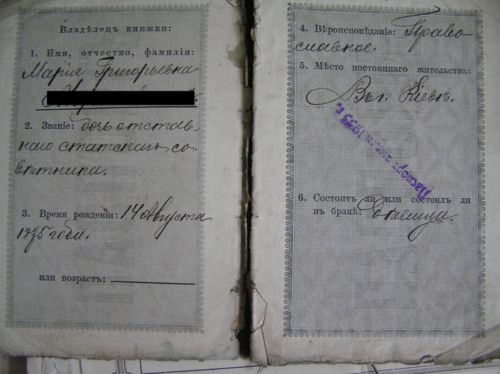 Владѣлецъ книжки:
1. Имя, отчество, фамилія:
Марія Григорьевна
2. Званіе: дочь отстав-
наго статскаго со-
вѣтника.
3. Время рожденія: 14 Августа
1875 года.
или возрастъ:
4. Вѣроисповѣданіе: Право
славное.
5. Мѣсто постояннаго жительства:
Кіевъ.
6. Состоитъ ли или состоялъ ли
въ бракѣ: дѣвица.
Паспорт 1933 г.